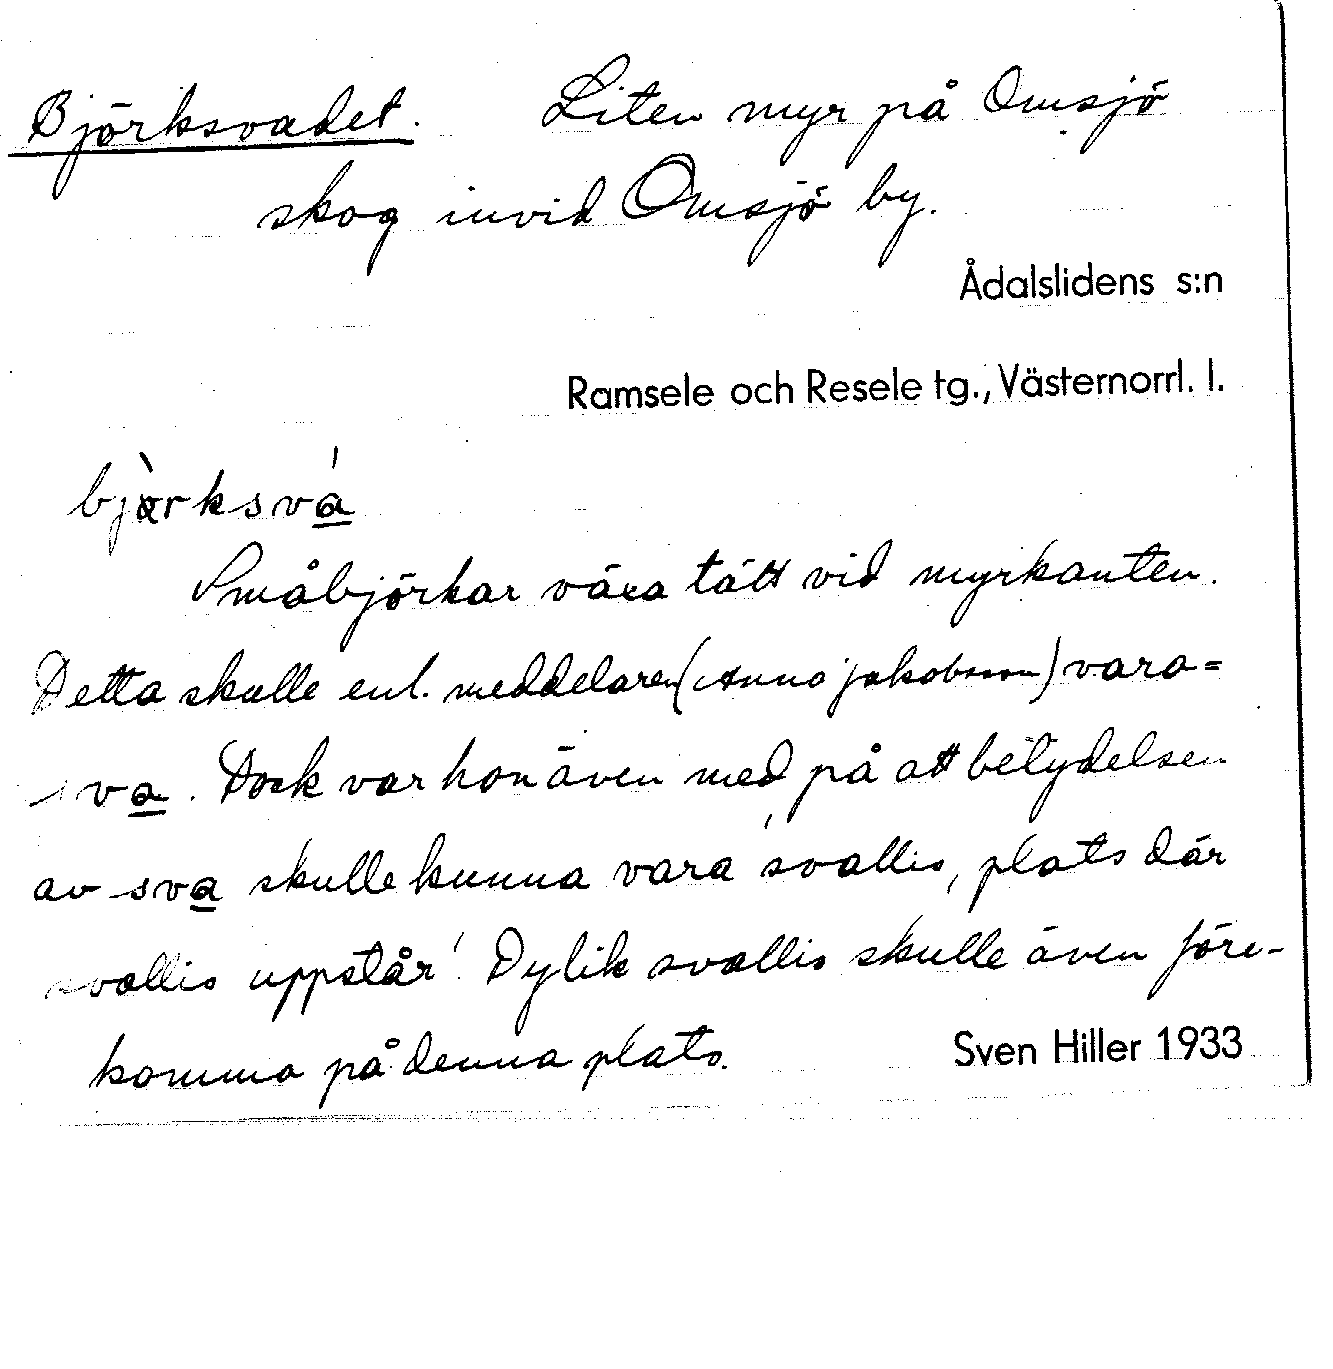 Björksvadet. Liten myr på Omsjö
skog invid Omsjö by.
Ådalslidens s:n
Ramsele och Resele tg., Västernorrl. l.
bjàrksvá
Småbjörkar växa tätt vid myrkanten.
Detta skulle enl. meddelaren (Anna Jakobsson) vara =
sva. Dock var hon även med på att betydelsen
av sva skulle kunna vara 'svallis, plats där
svallis uppstår'. Dylik svallis skulle även före-
komma på denna plats.
Sven Hiller 1933